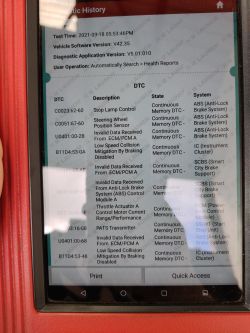 tic History
Test Time: 2021-09-18 05:53:40PM
Vehicle Software Version: V42.35
Diagnostic Application Version: V5.01.010
User Operation: Automatically Search > Health Reports
DTC
DTC Description State System
C0023:62-60 Stop Lamp Control Continuous Memory DTC - ABS (Anti-Lock Brake System)
C0051:67-60 Steering Wheel Position Sensor Continuous Memory DTC - ABS (Anti-Lock Brake System)
U0401:00-28 Invalid Data Received From ECM/PCM A Continuous Memory DTC - ABS (Anti-Lock Brake System)
B11D4:53-0A Low Speed Collision Mitigation By Braking Disabled Continuous Memory DTC - IC (Instrument Cluster)
Invalid Data Received From ECM/PCM A Continuous Memory DTC - SCBS (Smart City Brake Support)
Invalid Data Received From Anti-Lock Brake System (ABS) Control Module A Continuous Memory DTC - SCBS (Smart City Brake Support)
Throttle Actuator A Control Motor Current Range/Performance Continuous Memory DTC - ABS (Anti-Lock Brake System)
PATS Transmitter Continuous Memory DTC - ABS (Anti-Lock Brake System)
U0401:00-68 Invalid Data Received From ECM/PCM A Continuous Memory DTC - ABS (Anti-Lock Brake System)
B11D4:53-48 Low Speed Collision Mitigation By Braking Disabled Continuous Memory DTC - IC (Instrument Cluster)
Print Quick Access